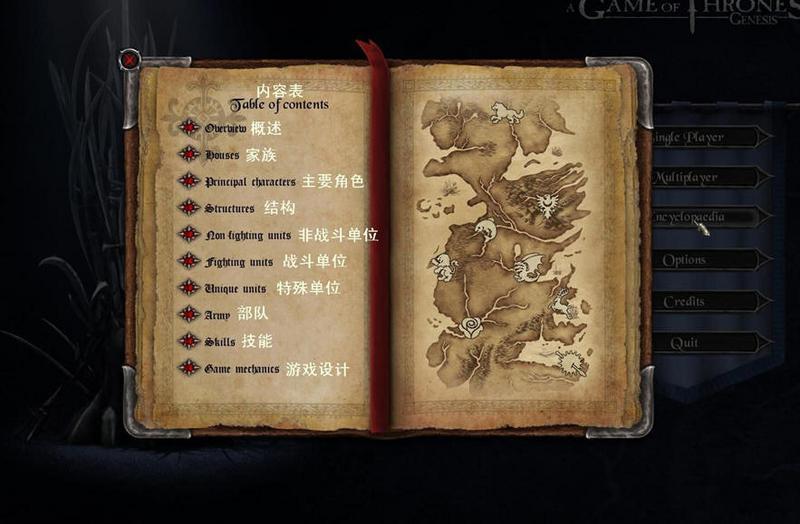 A GAME OF THRONES
GENESIS
内容表
Table of contents
Overview 概述
Houses 家族
Principal characters 主要角色
Structures 结构
Non-fighting units 非战斗单位
Fighting units 战斗单位
Unique units 特殊单位
Army 部队
Skills 技能
Game mechanics 游戏设计
Single Player
Multiplayer
Encyclopaedia
Options
Credits
Quit